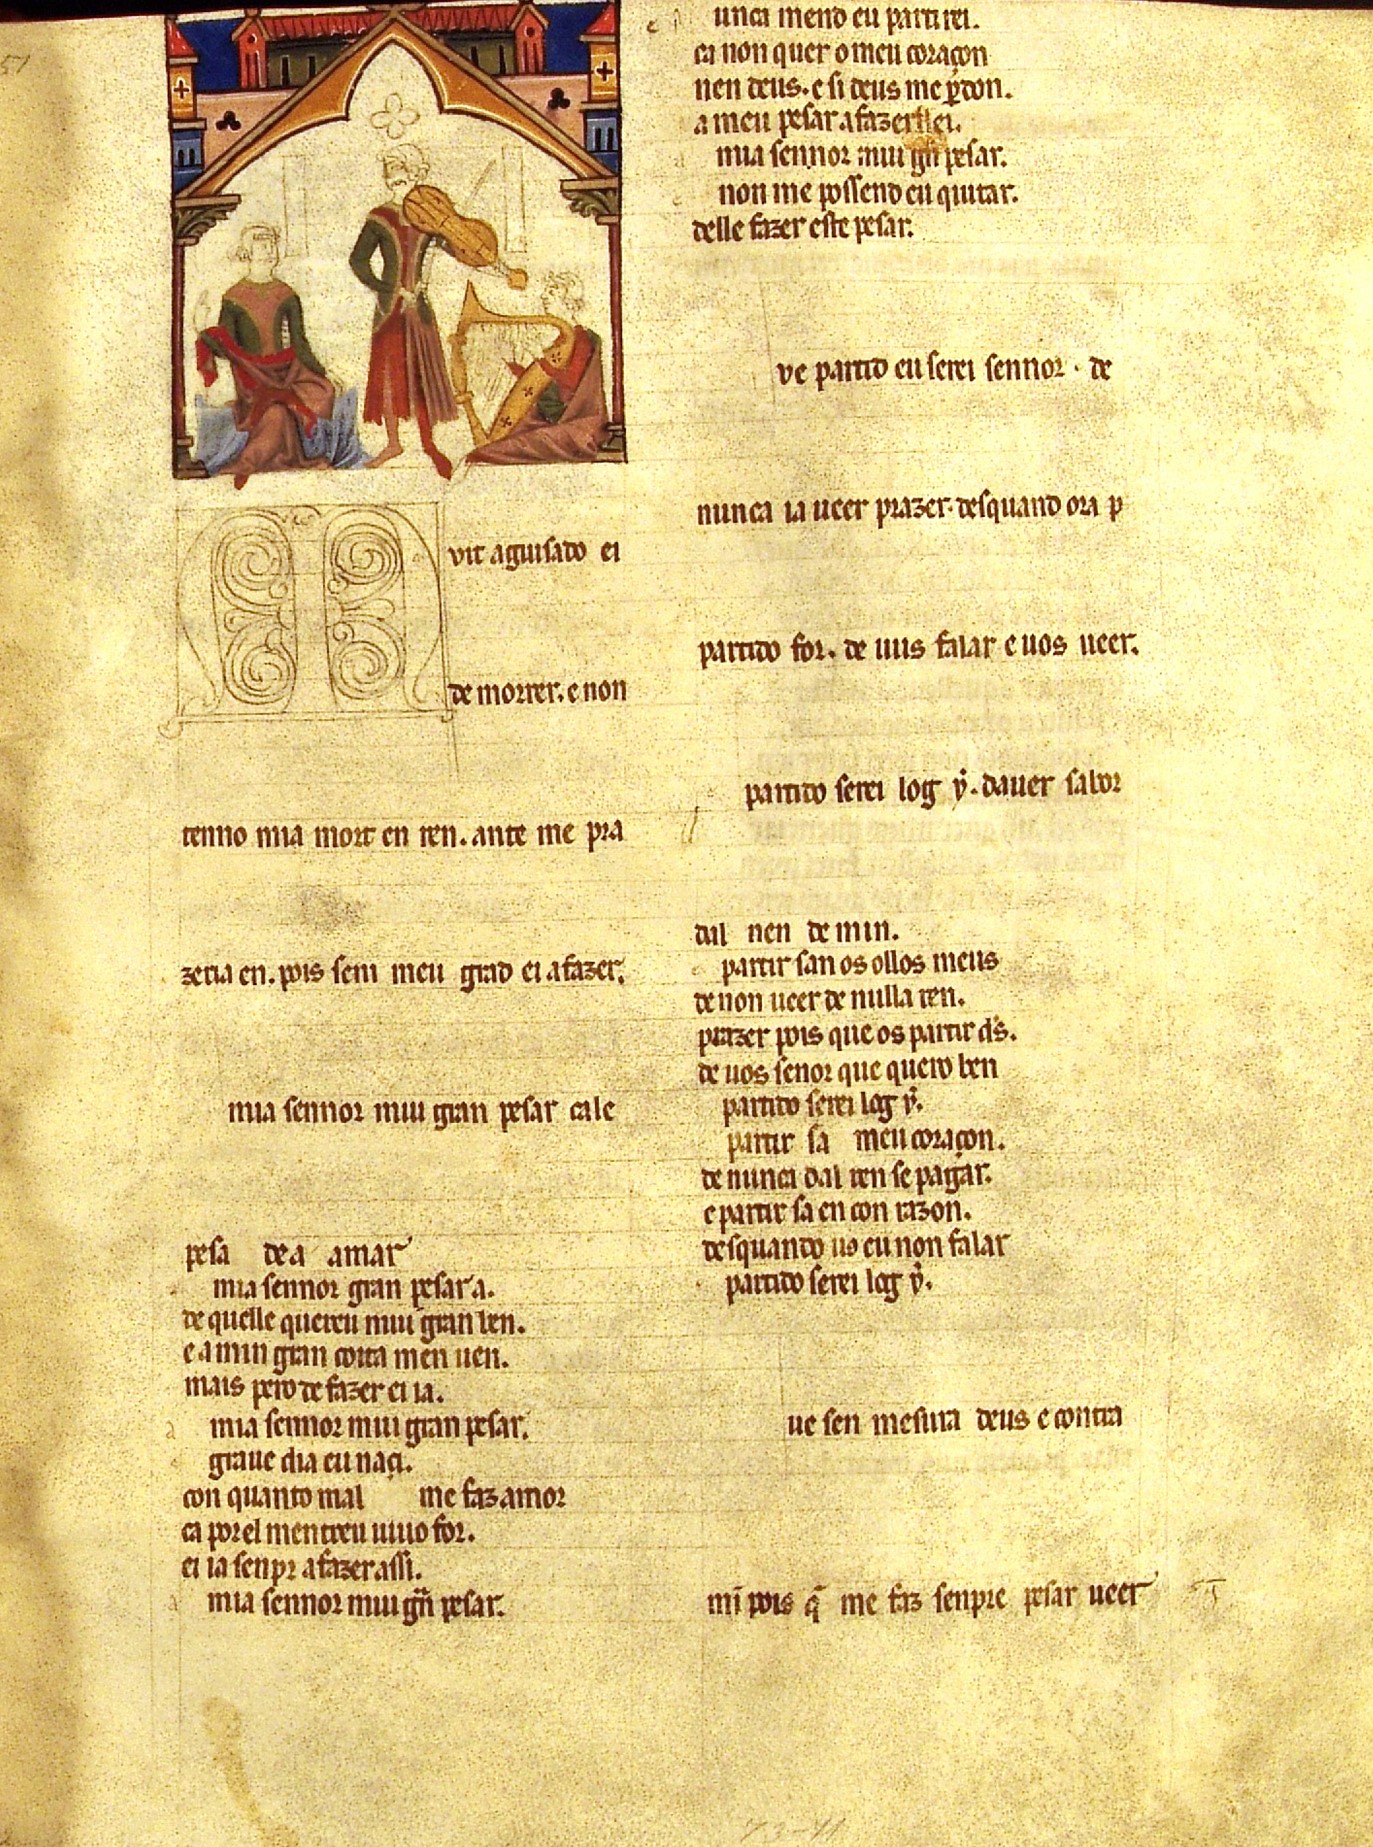 51
vit aguisado ei
de morrer. e non
tenno mia mort en ren. ante me pra
zeria en. pois sem meu grad ei a fazer.
mia sennor mui gran pesar cale
pesa de a amar
mia sennor gran pesar a.
de quelle quereu mui gran ben.
e a min gran coita men uen.
mais pero de fazer ei ia.
mia sennor mui gran pesar.
graue dia eu naçi.
con quanto mal me faz amor
ca por el mentreu uiuo for.
ei ia senpr a fazer assi.
mia sennor mui gñ pesar.
unca mend eu partirei.
ca non quer o meu coraçon
nen deus. e si deus me ꝑdon.
a meu pesar a fazerllei.
mia sennor mui gñ pesar.
non me possend eu quitar.
delle fazer este pesar.
ve partid eu serei sennor. de
nunca ia ueer prazer. desquand ora p
partido for. de uus falar e uos ueer.
partido serei log ẏ. dauer sabor
dal nen de min.
partir san os ollos meus
de non ueer de nulla ren.
prazer pois que os partir d̃s.
de uos senor que quero ben
partido serei log ẏ.
partir sa meu coraçon.
de nunca dal ren se pagar.
e partir sa en con razon.
desquando uo eu non falar
partido serei log ẏ.
ue sen mesura deus e contra
mĩ pois q̃ me faz senpre pesar ueer